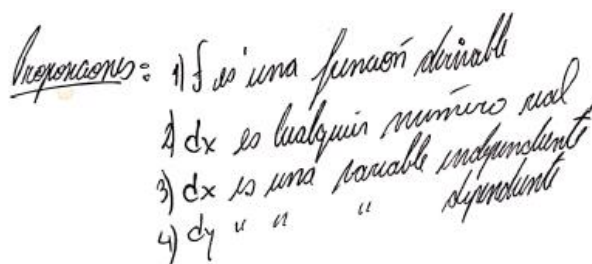 Proposiciones: 1) f es una función derivable
2) dx es cualquier número real
3) dx es una variable independiente
4) dy " " " dependiente